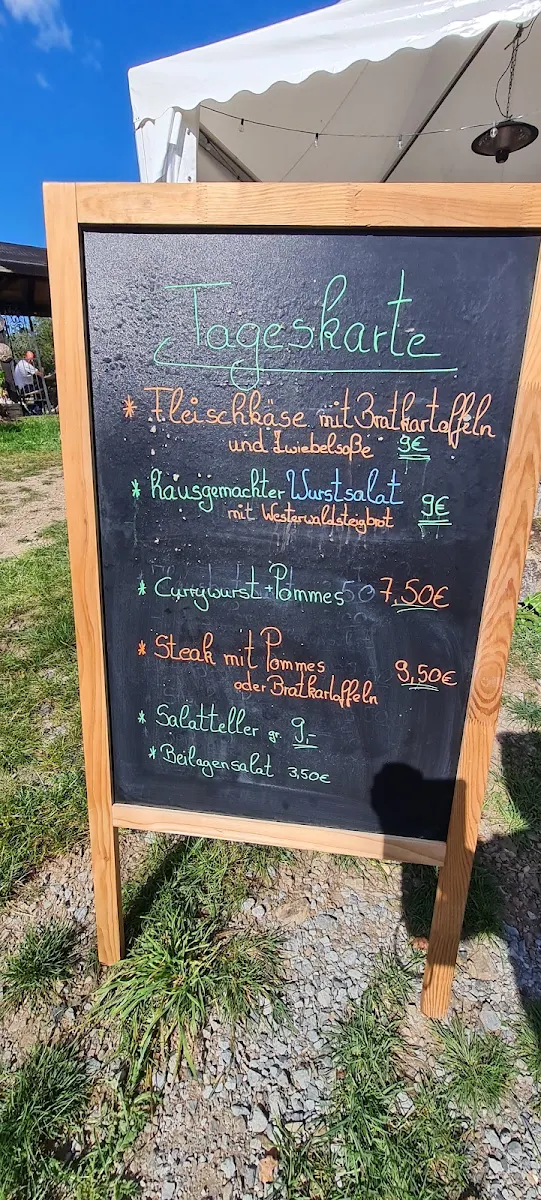 Tageskarte
* Fleischkäse mit Bratkartoffeln
und Zwiebelsoße 9€
* hausgemachter Wurstsalat 9€
mit Westerwaldsteigbrot
* Currywurst + Pommes 7,50€
* Steak mit Pommes 9,50€
oder Bratkartoffeln
* Salatteller gr. 9,-
* Beilagensalat 3,50€